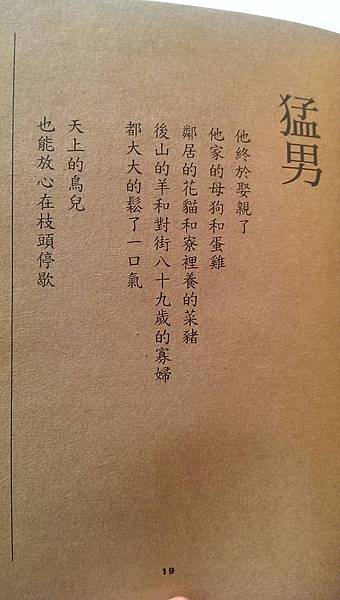 猛男
他終於娶親了
他家的母狗和蛋雞
鄰居的花貓和寮裡養的菜豬
後山的羊和對街八十九歲的寡婦
都大大的鬆了一口氣
天上的鳥兒
也能放心在枝頭停歇
19